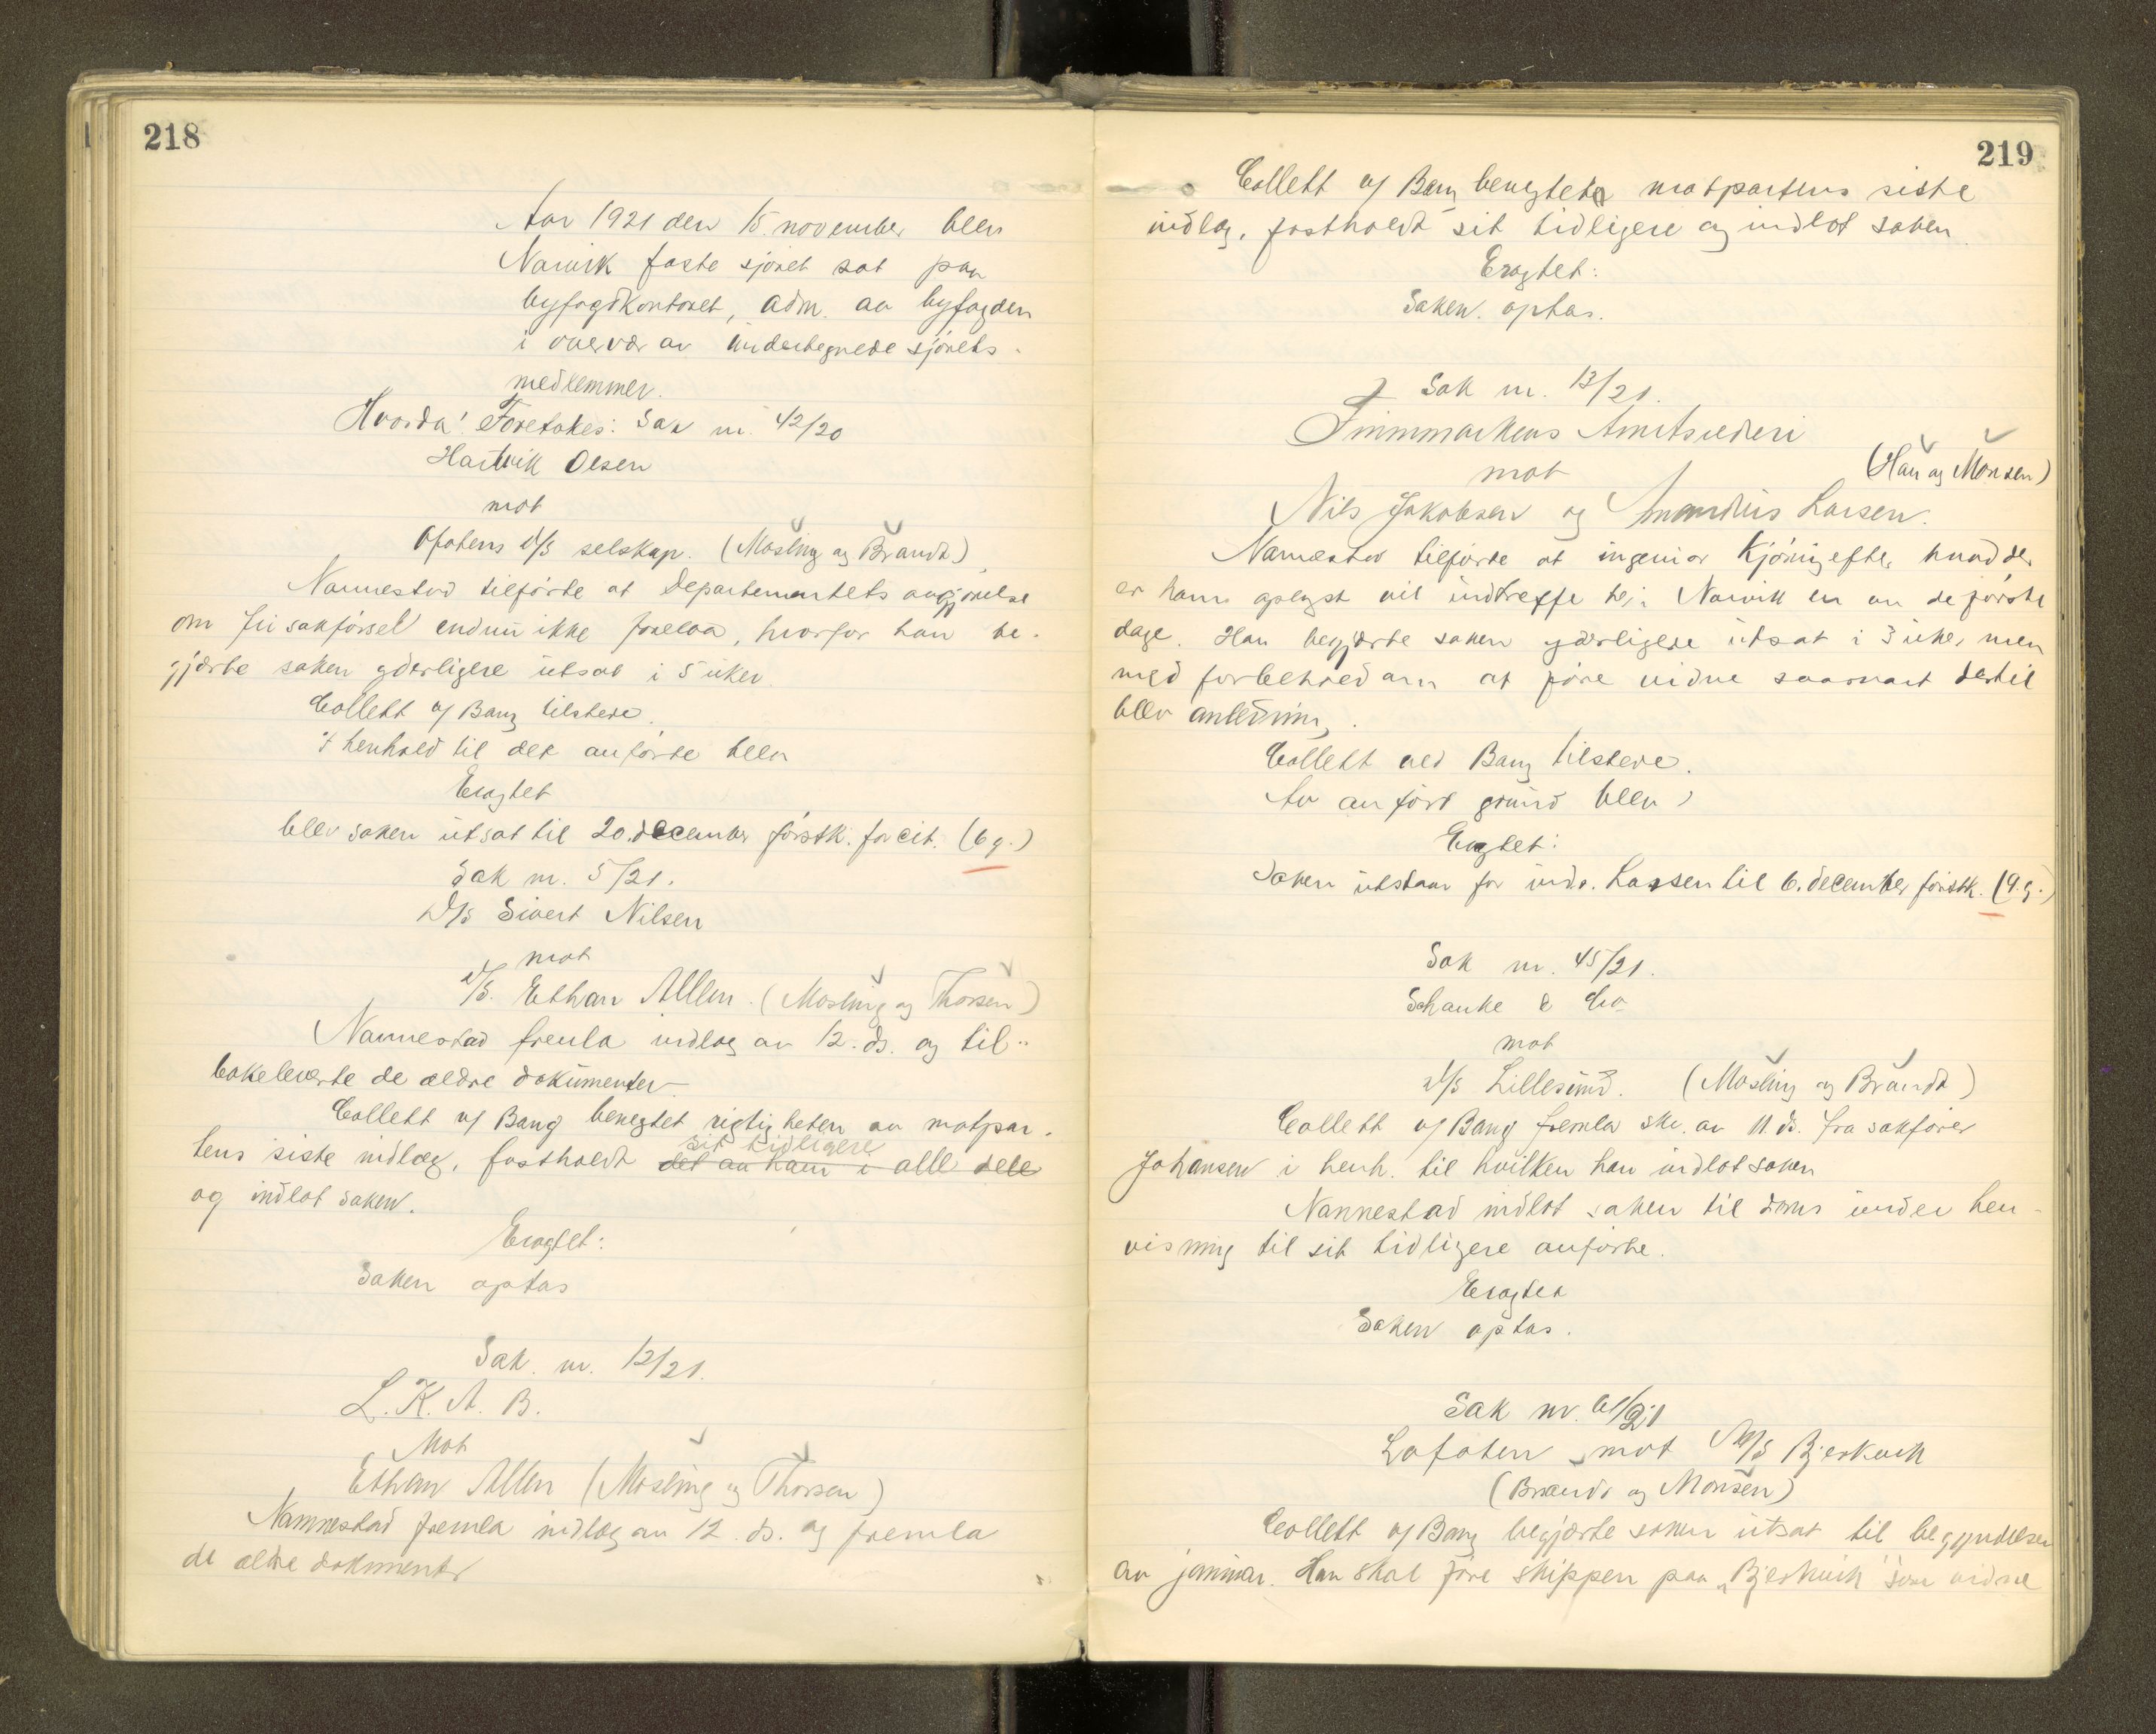 218
Aar 1921 den 15. november blev
Narvik faste sjöret sat paa
byfogdkontoret, adm. av byfogden
i overvær av undertegnede sjörets-
medlemmer.
Hvorda! Foretokes: Sak nr. 42/20
Hartvik Olsen
mot
Ofotens D/S selskap. (Mosling og Brandt)
Nannestad tilförte at Departementets avgjörelse
om fri sakförsel endnu ikke forelaa, hvorfor han be-
gjærte saken yderligere utsat i 5 uker.
Collett v/ Bang tilstede.
I henhold til det anförte blev
Eragtet
blev saken utsat til 20. december förstk. for cit. (6 g.)
Sak nr. 5/21.
D/S Sivert Nilsen
mot
D/S. Ethan Allen. (Mosling og Thorsen)
Nannestad fremla indlæg av 12. ds. og til-
bakeleverte de ældre dokumenter
Collett v/ Bang benegtet rigtigheten av motpar-
sit tidligere
tens siste indlæg, fastholdt det av ham i alle dele
og indlot saken.
Eragtet:
Saken optas
Sak. nr. 12/21.
L. K. A. B.
Mot
Ethan Allen (Mosling og Thorsen)
Nannestad fremla indlæg av 12. ds. og fremla
de ældre dokumenter
219
Collett v/ Bang benegtet motpartens siste
indlæg, fastholdt sit tidligere og indlot saken
Eragtet:
Saken optas.
Sak nr. 13/21.
Finnmarkens Amtsrederi
mot
(Hau og Monsen)
Nils Jakobsen og Amandius Larsen.
Nannestad tilförte at ingeniør Kjönig efter hvad der
er ham oplyst vil indtreffe til Narvik en av de förste
dage. Han begjærte saken yderligere utsat i 3 uker men
med forbehold om at före vidne saasnart dertil
blev anledning.
Collett ved Bang tilstede.
Av anfört grund blev
Eragtet:
Saken utstaar for indr. Larsen til 6. december förstk. (9. g.)
Sak nr. 45/21.
Schanke & Co
mot
D/S Lillesund. (Mosling og Brandt)
Collett v/ Bang fremla skr. av 11. ds. fra sakförer
Johansen i henh. til hvilken han indlot saken
Nannestad indlot saken til doms under hen-
visning til sit tidligere anförte.
Eragtet
Saken optas.
Sak nr. 61/21
Lofoten mot M/S Bjerkvik
(Brandt og Monsen)
Collett v/ Bang begjærte saken utsat til begyndelsen
av januar. Han skal före skipperen paa „Bjerkvik" som vidne